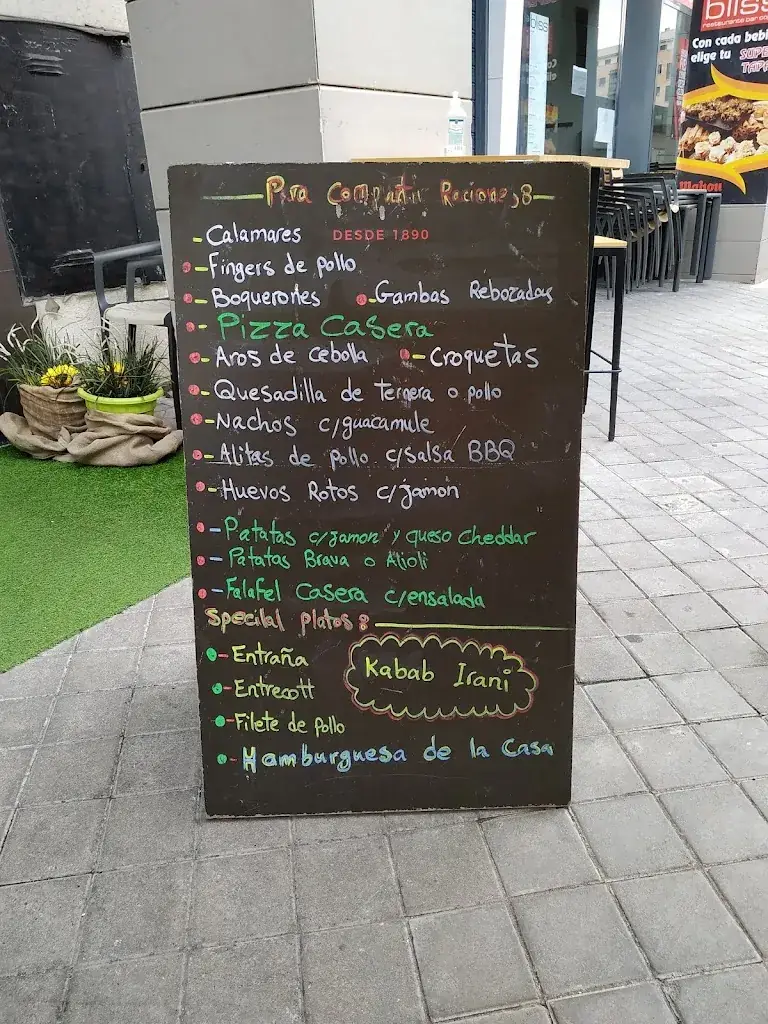 bliss
restaurante bar
Con cada bebi
elige tu SUPE
TAPA
Mahou
Para Compartir Raciones:
- Calamares DESDE 1890
- Fingers de pollo
- Boquerones - Gambas Rebozadas
- Pizza Casera
- Aros de cebolla - Croquetas
- Quesadilla de ternera o pollo
- Nachos c/guacamule
- Alitas de pollo c/salsa BBQ
- Huevos Rotos c/jamon
- Patatas c/jamon y queso cheddar
- Patatas Brava o Alioli
- Falafel Casera c/ensalada
Specilal platos:
- Entraña
- Entrecott
Kabab Irani
- Filete de pollo
- Hamburguesa de la Casa